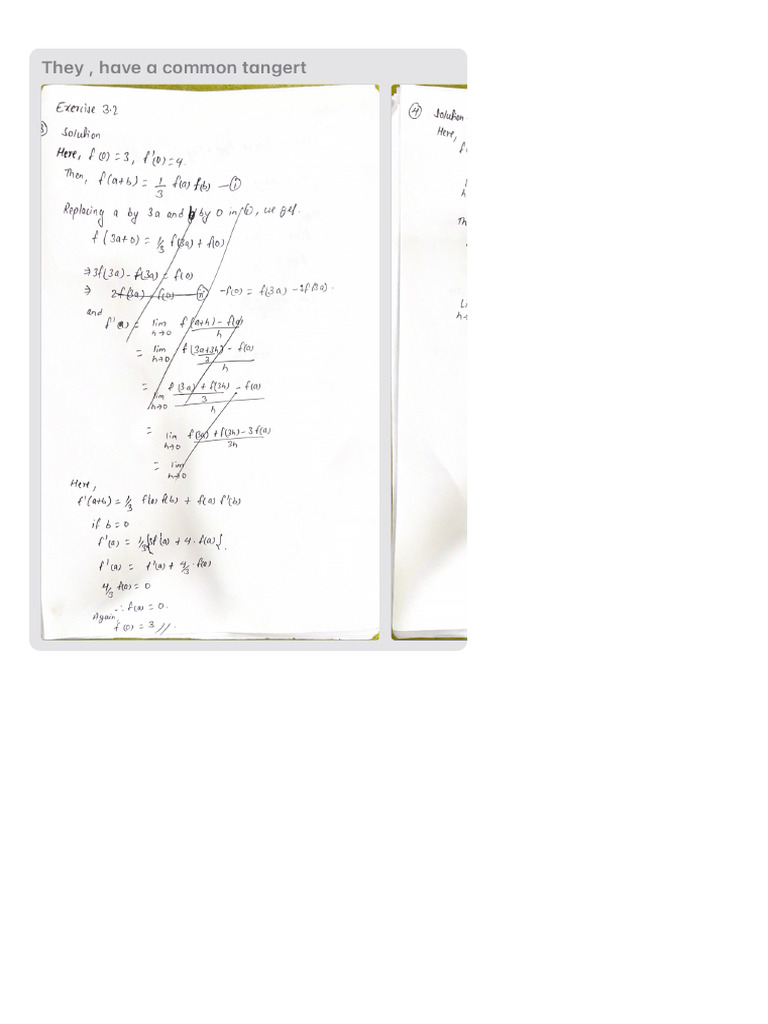 They , have a common tangert
Exercise 3.2
3) Solution
Here, f(0) = 3, f'(0) = 4.
Then, f(a+b) = 1/3 f(a) f(b) — (i)
Replacing a by 3a and b by 0 in (i), we get.
f(3a+0) = 1/3 f(3a) + f(0)
⇒ 3f(3a) - f(3a) = f(0)
⇒ 2f(3a) - f(0) — (ii) -f(0) = f(3a) - 2f(3a).
and
f'(a) = lim h→0 f(a+h) - f(a) / h
= lim h→0 f(3a+3h)/3 - f(a) / h
= lim h→0 f(3a) + f(3h) / 3 - f(a) / h
= lim h→0 f(3a) + f(3h) - 3f(a) / 3h
= lim h→0
Here,
f'(a+b) = 1/3 f'(a) f(b) + f(a) f'(b)
if b = 0
f'(a) = 1/3 {3f'(a) + 4. f(a)}.
f'(a) = f'(a) + 4/3 . f(a)
4/3 f(a) = 0
∴ f(a) = 0.
Again,
f(0) = 3 //.
4) Solution
Here,
Th
h→